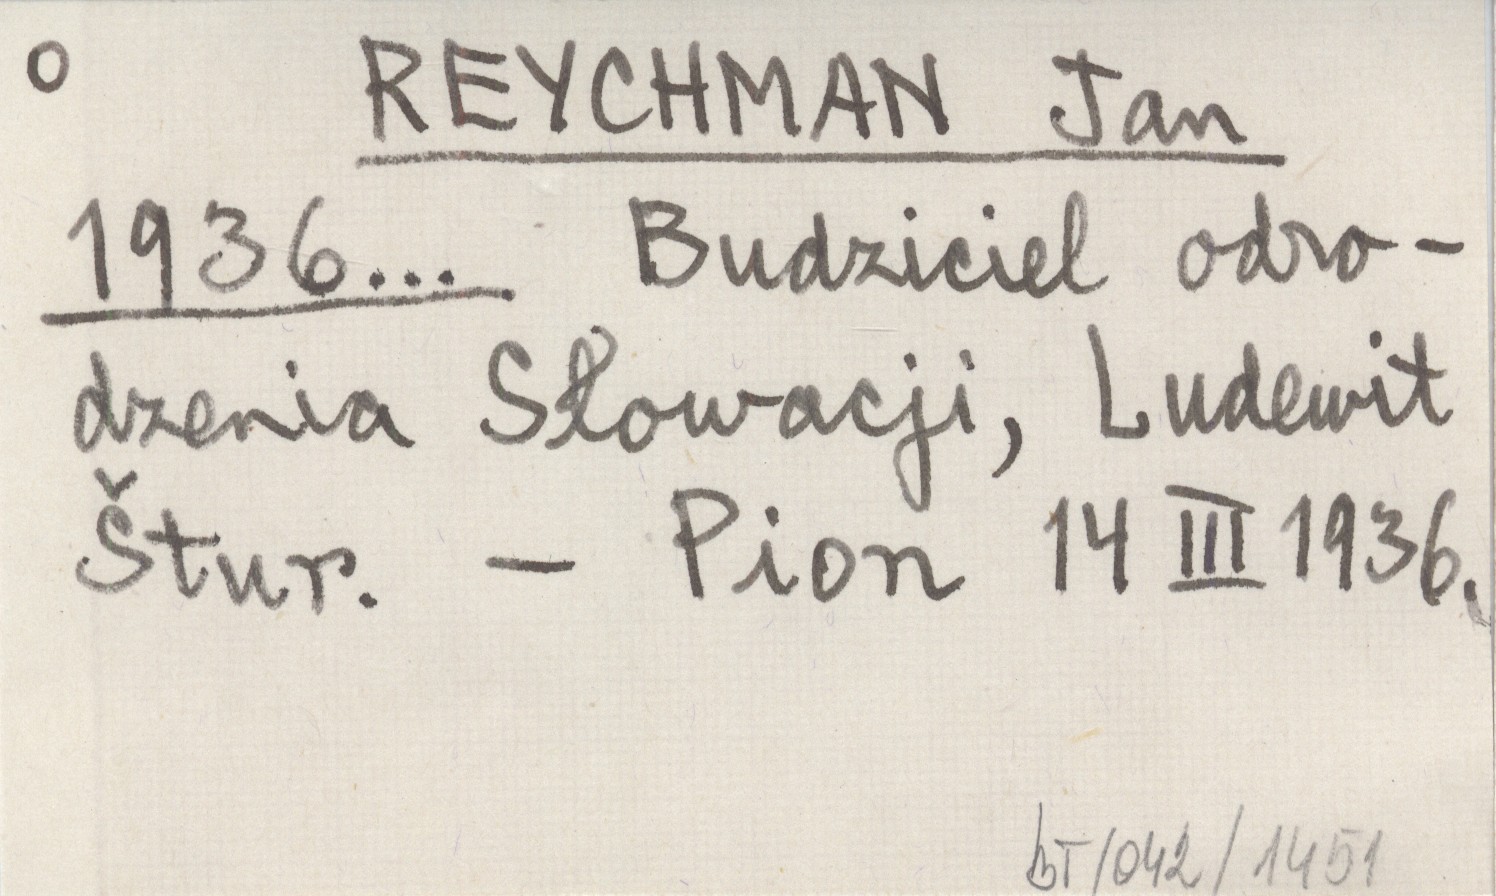 o REYCHMAN Jan
1936... Budziciel odro-
dzenia Słowacji, Ludewit
Štur. - Pion 14 III 1936.
BT/042/1451